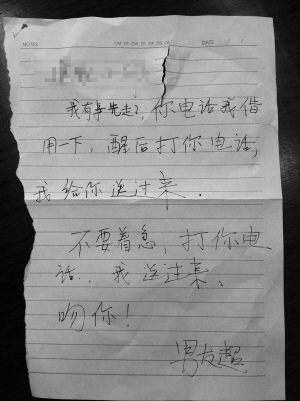 NOTES
DATE
我有事先走了,你电话我借
用一下,醒后打你电话,
我给你送过来.
不要着急,打你电
话,我送过来、
吻你!
男友超